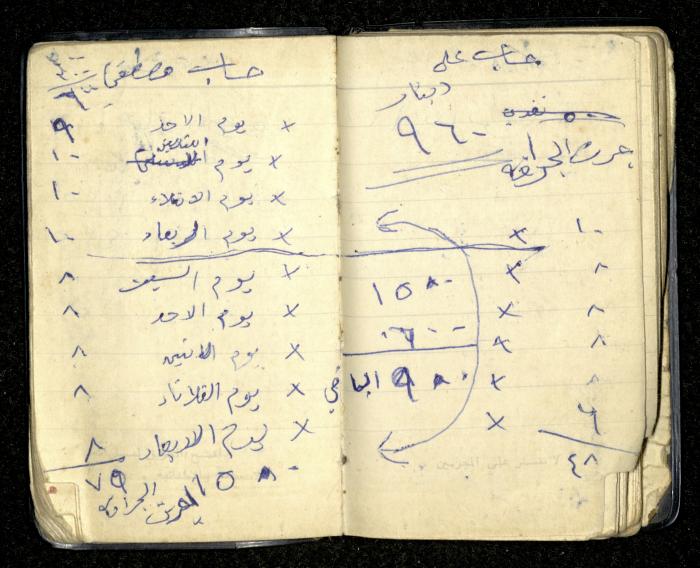 حساب علي
دينار
٩٦٠
نقدي ٥٠٠
عرت الجرافه
١٠ ×
٨ ×
٨ × ١٥٨٠
٨ × ٠٦٠٠
٨ × ٩٨٠ الباقي
٦ ×
٤٨
حساب مصطفى
× يوم الاحد ٩
× يوم الاثنين ١٠
× يوم الاثلاء ١٠
× يوم الربعاء ١٠
× يوم السبت ٨
× يوم الاحد ٨
× يوم الاثنين ٨
× يوم الثلاثاء ٨
× يوم الاربعاء ٨
٧٩
١٥٨٠
الجرافه